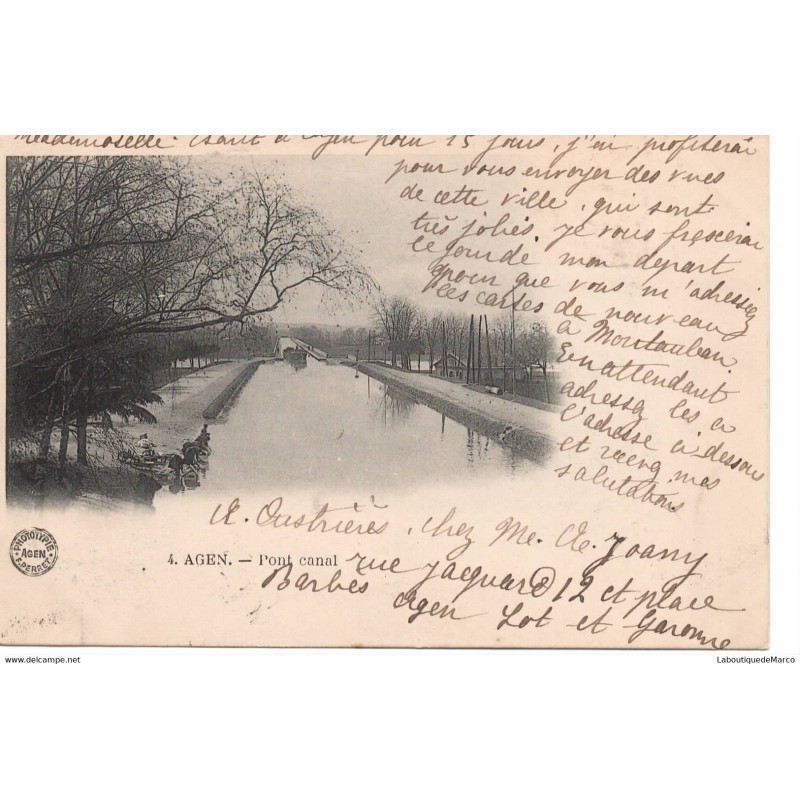 Mademoiselle. Etant à Agen pour 15 jours, j'en profiterai
pour vous envoyer des vues
de cette ville, qui sont
très jolies. Je vous
le jour de mon depart
pour que vous m'adressiez
les cartes de nouveau
a Montauban.
En attendant
adressez les a
l'adresse ci dessous
et recevez mes
salutations
A. Oustrières, chez Me. A. Joany
4. AGEN. — Pont canal
rue Jaquard 12 et place
Barbès
Agen Lot et Garonne
PHOTOTYPIE
AGEN
F. PERRET
www.delcampe.net
LaboutiquedeMarco